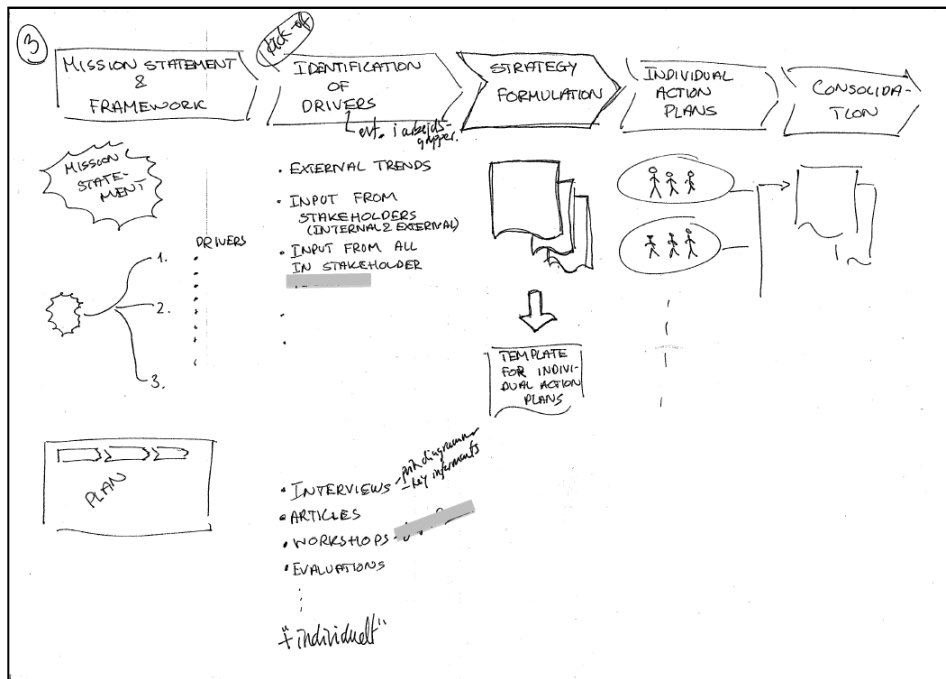 3
MISSION STATEMENT
&
FRAMEWORK
kick-off
IDENTIFICATION
OF
DRIVERS
evt. i arbeids-
grupper.
STRATEGY
FORMULATION
INDIVIDUAL
ACTION
PLANS
CONSOLIDA-
TION
MISSION
STATE-
MENT
DRIVERS
1.
2.
3.
PLAN
• EXTERNAL TRENDS
• INPUT FROM
STAKEHOLDERS
(INTERNAL & EXTERNAL)
• INPUT FROM ALL
IN STAKEHOLDER
• INTERVIEWS
- key informants
• ARTICLES
• WORKSHOPS -
• EVALUATIONS
"individuelt"
TEMPLATE
FOR INDIVI-
DUAL ACTION
PLANS